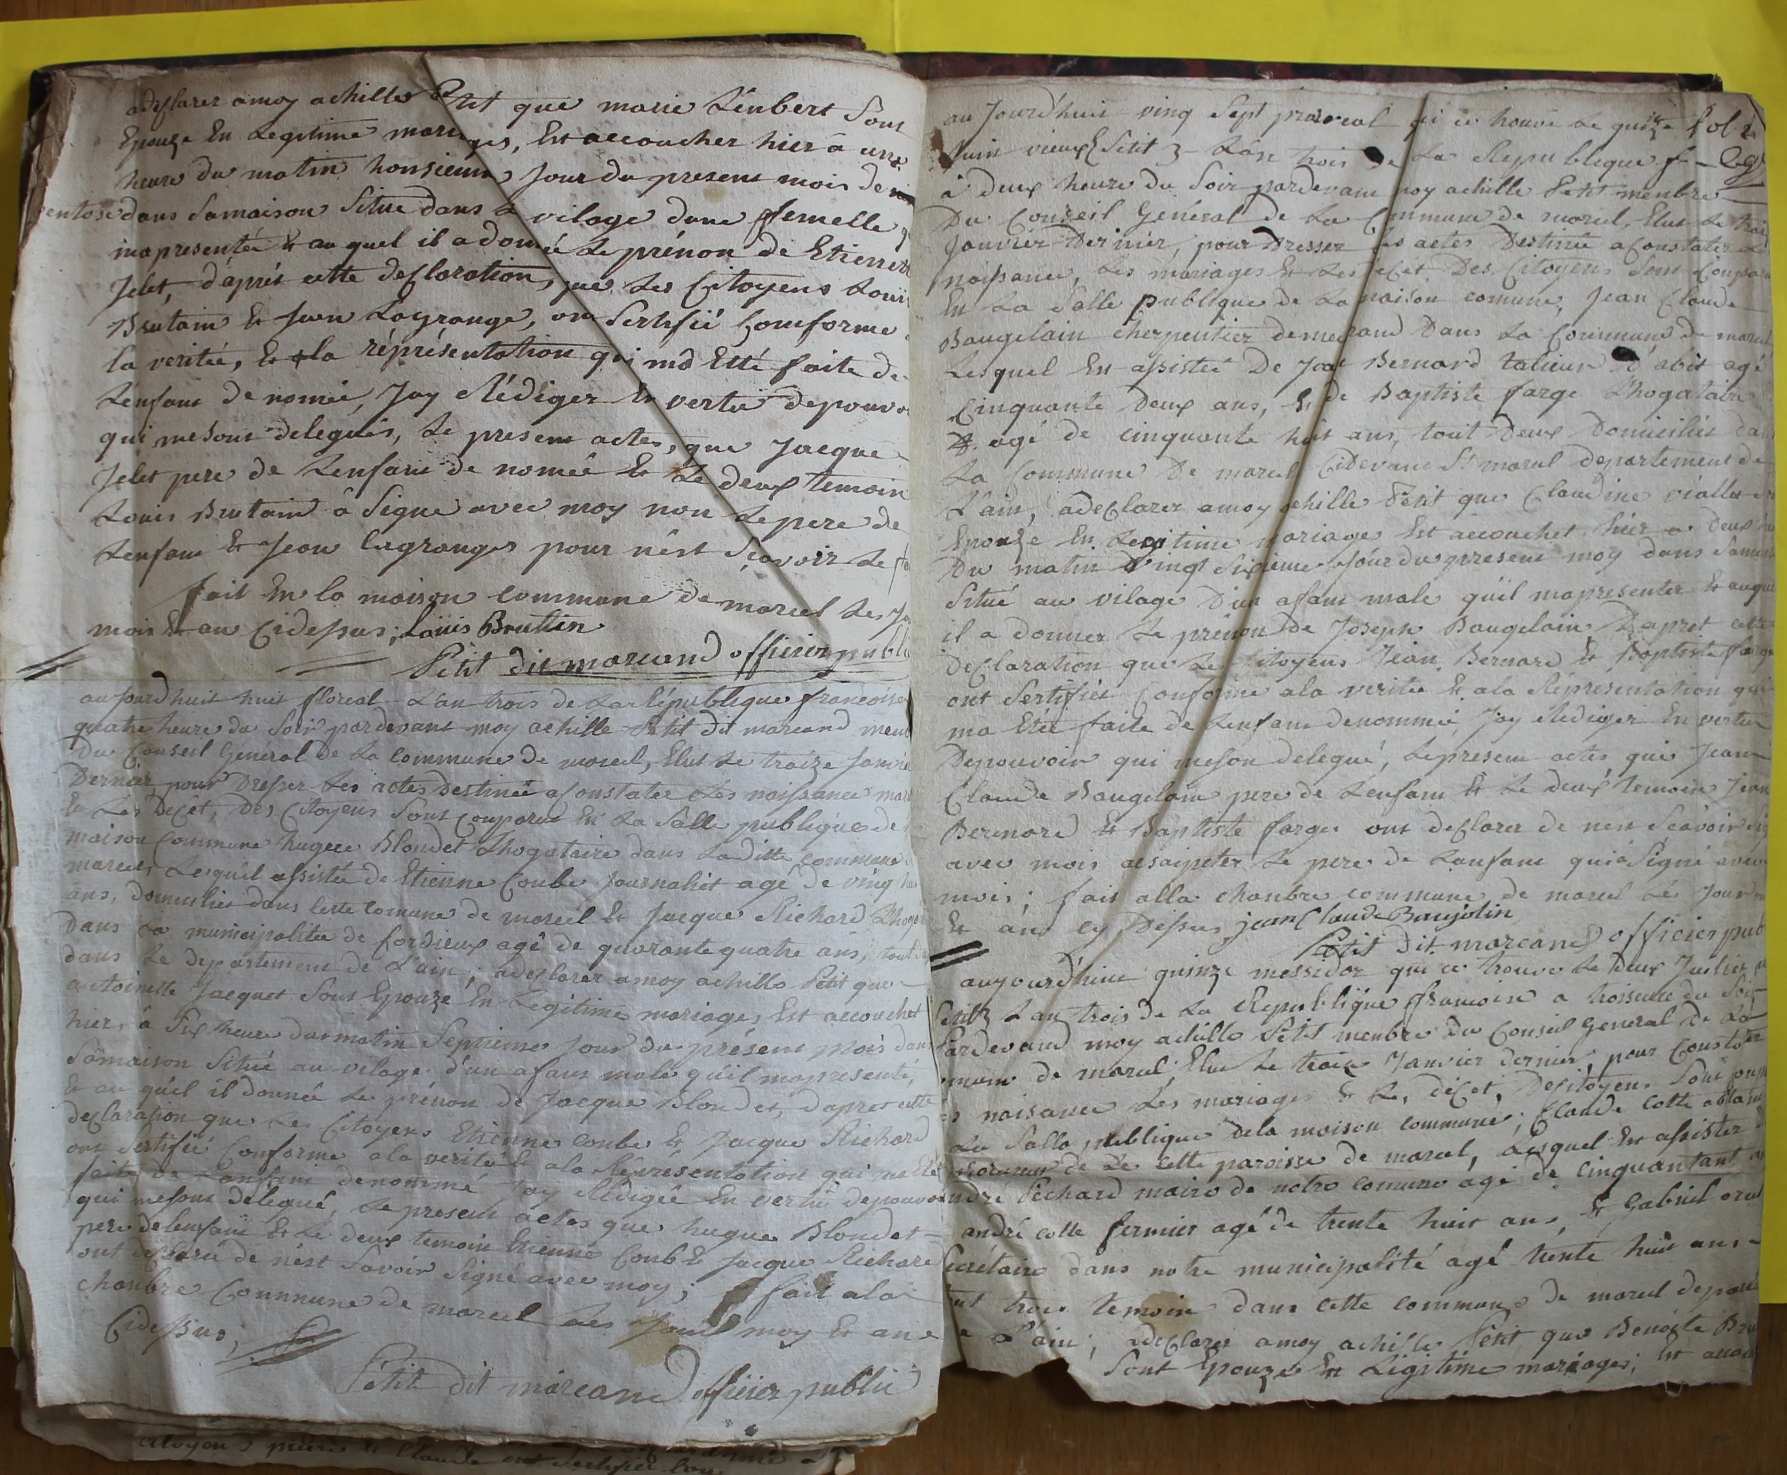 adeflarer amoy achilles Petit que marie Lénbert Sont
Epouze En Legitime mariages, Est accoucher hier â une
heure du matin honsieme Jour du present mois de
ventose dans Samaison Situé dans le vilage dune ffemelle
mapresentée & au quel il a donné Le prénon de Etiennette
Jelet, dáprés cette defflaration, que Les Citoyens Louis
Brutain & Jean Lagrange, on Sertifié Comforme
la veritée, & ala répréséntation qui ma Etté faite de
Lenfans de nomée, Jay Rédiger En vertu depouvoir
qui mesont delegués, Le present actes, que Jacque
Jelet pere de Lenfans de nomée & Le deux temoin
Louis Brutain â Signe avec moy non Le pere de
Lenfans & Jean lagranges pour nést Sçavoir Le
fait En la maison commune de marcel Les Jour
mois & an Cidessus; Loüis Brutin
Petit dit marcand officier public
aujourdhuit huit floreal L'an trois de La République francoise
quatre heure du Soir pardevant moy achille Petit dit marcand menbre
Du Conseil Général de La Commune de marcel, Elut Le traize Janvier
Dernier pour Dresser Les actes Destinée a Constater Les naissance mariages
& Les Decet, Des Citoyens Sont Conparut En La Salle publique de
maison Commune hugue Blondet Lhogataire dans Laditte commune
marcel, Lequil assistée de Etienne Combe Journaliet agé de ving
ans, domicilier dans Cette Comune de marcel & Jacque Richard
Dans La municipalitée de Cordieux agé de quarante quatre ans, tout
dans Le Departement de L'ain; adeflarer amoy achille Petit que
antoinette Jacquet Sont Epouze En Legitime mariage, Est accouchet
hier, à Six heure du matin Septieme Jour du présent Mois dans
Samaison Situé au vilage d'un afans male qu'il mapresenté,
& au quil il donnée Le prénon de Jacque Blondet, Dapres cette
deflaration que Les Citoyens Etienne Combe & Jacque Richard
ont Sertifiée Conforme a la verité & ala Réprésentation qui ma Eté
faite de Lanfans denommé Jay Rédigée En vertu depouvoir
qui mesont délegué, Le present actes que hugue Blondet
pere de lenfans & Le deux temoin Etienne Comb & Jacque Richard
ont deflarée de nést Savoir Signé avec moy; fait ala
Chanbre Commune de marcel Les Jour moy & an
Cidessus;
Pétit dit marcand officier public
au Jourd'huit ving Sept prareal qui ce trouve Le quinze
Juin vieux Stit L'an trois de La Republique f
à deux heure du Soir pardevant moy achille Petit menbre
Du Conseil Général de La Commune de marcel, Elut Le traize
Janvier Dernier, pour Dresser Les actes Destinée a Constater La
naissance, Les mariages & Les decet Des Citoyens Sont Conparut
En La Salle publique de La maison comune, Jean Claude
Baugelain Cherpentier demeurand Dans La Commune de marcel
Lesquel En assistée De Jean Bernard talieur D'abit agé
Cinquante Deux ans, & de Baptiste farge Lhogataire
agé de cinquante huit ans, tout Deux Domiciliés dans
La Commune De marcel Cidevant St marcel departement de
L'ain, adeflarer amoy achille Petit que Claudine viallet
Epouze En Legitime mariages Est accouchet hier a Deux
Du matin Vingt Sixieme Jour du present moy dans Samaison
Situé au vilage D'un afans male qu'il mapresenter & auquel
il a donner Le prénon de Joseph Baugelain, Dapret cette
Deflaration que Les Citoyens Jean Bernard & Baptiste farge
ont Sertifiée Conforme ala verité & ala Réprésentation qui
ma Etée faite de Lenfans denommée, Jay Rédiger En vertu
Depouvoir qui meson delegué, Le present actes que Jean
Claude Baugelain pere de Lenfans & Le deux temoin Jean
Bernard & Baptiste farge ont deflarer de nest Sçavoir
avec mois a Lepere de Lanfans qui a Signé avec
mois; fait alla chanbre commune de marcel Les Jour
& an Cy Dessus jean Claude Baujolin
Petit dit marcand officier public
aujourd'huit quinze messidor qui ce trouve Le deux Juilier
L'an trois de La République francoise a troiseure du Soir
Pardevand moy achille Petit menbre du Conseil General de La
de marcel Elue Le traize Janvier dernier pour Constater
naisance Les mariages & Le, décet, Descitoyens Sont
La Salle publique dela maison commune, Claude Cotte
de Cette paroisse de marcel, Lesquel Est assister
Richard maire de notre comune agé de cinquantant
andré cotte fermier agé de trente huit ans, & Gabriel
Secrétaire dans notre municipalité agé trente huit ans
trois temoin dans cette commune de marcel
L'ain; adeflarer amoy achille Petit que Benoite
Sont Epouze En Légitime mariages, Est